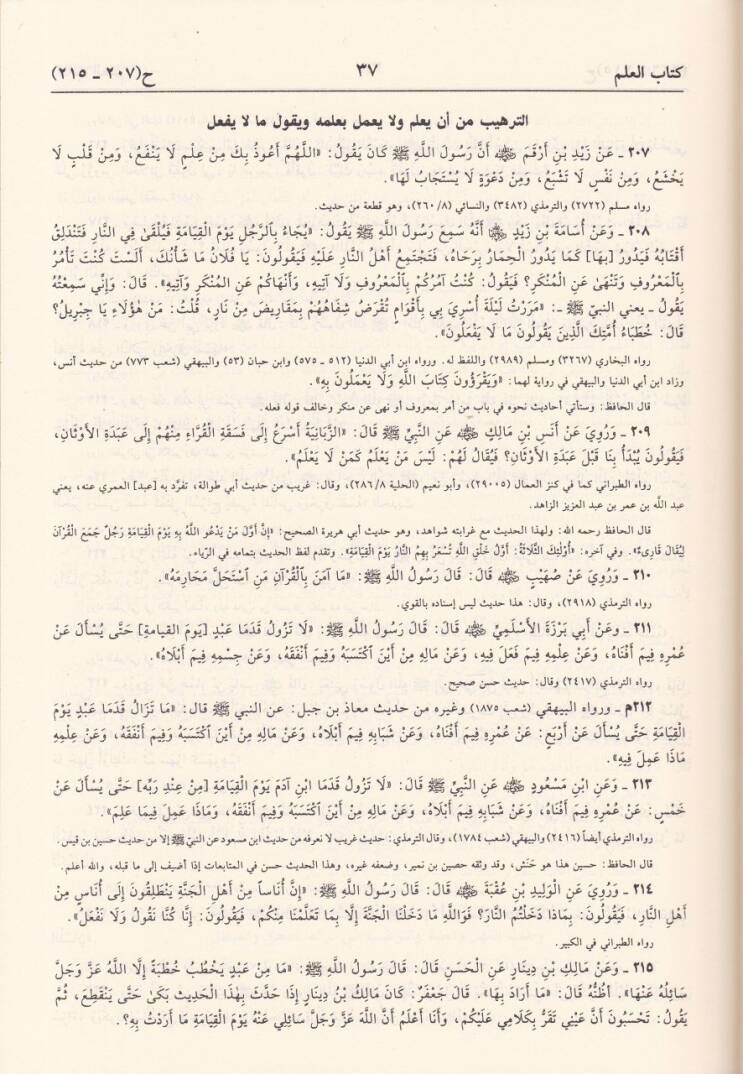 كتاب العلم ٣٧ ح(٢٠٧ ـ ٢١٥)
الترهيب من أن يعلم ولا يعمل بعلمه ويقول ما لا يفعل
٢٠٧ ـ عَنْ زَيْدِ بْنِ أَرْقَمَ ﷺ أَنَّ رَسُولَ اللَّهِ ﷺ كَانَ يَقُولُ: «اللَّهُمَّ أَعُوذُ بِكَ مِنْ عِلْمٍ لَا يَنْفَعُ، وَمِنْ قَلْبٍ لَا
يَخْشَعُ، وَمِنْ نَفْسٍ لَا تَشْبَعُ، وَمِنْ دَعْوَةٍ لَا يُسْتَجَابُ لَهَا».
رواه مسلم (٢٧٢٢) والترمذي (٣٤٨٢) والنسائي (٢٦٠/٨)، وهو قطعة من حديث.
٢٠٨ ـ وَعَنْ أُسَامَةَ بْنِ زَيْدٍ ﷺ أَنَّهُ سَمِعَ رَسُولَ اللَّهِ ﷺ يَقُولُ: «يُجَاءُ بِالرَّجُلِ يَوْمَ الْقِيَامَةِ فَيُلْقَىٰ فِي النَّارِ فَتَنْدَلِقُ
أَقْتَابُهُ فَيَدُورُ [بِهَا] كَمَا يَدُورُ الْحِمَارُ بِرَحَاهُ، فَتَجْتَمِعُ أَهْلُ النَّارِ عَلَيْهِ فَيَقُولُونَ: يَا فُلَانُ مَا شَأْنُكَ، أَلَسْتَ كُنْتَ تَأْمُرُ
بِالْمَعْرُوفِ وَتَنْهَىٰ عَنِ الْمُنْكَرِ؟ فَيَقُولُ: كُنْتُ آمُرُكُمْ بِالْمَعْرُوفِ وَلَا آتِيهِ، وَأَنْهَاكُمْ عَنِ الْمُنْكَرِ وَآتِيهِ». قَالَ: وَإِنِّي سَمِعْتُهُ
يَقُولُ ـ يعني النبيّ ﷺ ـ: «مَرَرْتُ لَيْلَةَ أُسْرِيَ بِي بِأَقْوَامٍ تُقْرَضُ شِفَاهُهُمْ بِمَقَارِيضَ مِنْ نَارٍ، قُلْتُ: مَنْ هٰؤُلَاءِ يَا جِبْرِيلُ؟
قَالَ: خُطَبَاءُ أُمَّتِكَ الَّذِينَ يَقُولُونَ مَا لَا يَفْعَلُونَ».
رواه البخاري (٣٢٦٧) ومسلم (٢٩٨٩) واللفظ له. ورواه ابن أبي الدنيا (٥١٢ ـ ٥٧٥) وابن حبان (٥٣) والبيهقي (شعب ٧٧٣) من حديث أنس،
وزاد ابن أبي الدنيا والبيهقي في رواية لهما: «وَيَقْرَؤُونَ كِتَابَ اللَّهِ وَلَا يَعْمَلُونَ بِهِ».
قال الحافظ: وستأتي أحاديث نحوه في باب من أمر بمعروف أو نهى عن منكر وخالف قوله فعله.
٢٠٩ ـ وَرُوِيَ عَنْ أَنَسِ بْنِ مَالِكٍ ﷺ عَنِ النَّبِيِّ ﷺ قَالَ: «الزَّبَانِيَةُ أَسْرَعُ إِلَى فَسَقَةِ الْقُرَّاءِ مِنْهُمْ إِلَى عَبَدَةِ الأَوْثَانِ،
فَيَقُولُونَ يُبْدَأُ بِنَا قَبْلَ عَبَدَةِ الأَوْثَانِ؟ فَيُقَالُ لَهُمْ: لَيْسَ مَنْ يَعْلَمُ كَمَنْ لَا يَعْلَمُ».
رواه الطبراني كما في كنز العمال (٢٩٠٠٥)، وأبو نعيم (الحلية ٢٨٦/٨)، وقال: غريب من حديث أبي طوالة، تفرَّد به [عبد] العمري عنه، يعني
عبد الله بن عمر بن عبد العزيز الزاهد.
قال الحافظ رحمه الله: ولهذا الحديث مع غرابته شواهد، وهو حديث أبي هريرة الصحيح: «إِنَّ أَوَّلَ مَنْ يَدْعُو اللَّهُ بِهِ يَوْمَ الْقِيَامَةِ رَجُلٌ جَمَعَ الْقُرْآنَ
لِيُقَالَ قَارِىءٌ». وفي آخره: «أُولٰئِكَ الثَّلَاثَةُ: أَوَّلُ خَلْقِ اللَّهِ تُسْعَرُ بِهِمُ النَّارُ يَوْمَ الْقِيَامَةِ». وتقدم لفظ الحديث بتمامه في الرِّياء.
٢١٠ ـ وَرُوِيَ عَنْ صُهَيْبٍ ﷺ قَالَ: قَالَ رَسُولُ اللَّهِ ﷺ: «مَا آمَنَ بِالْقُرْآنِ مَنِ اسْتَحَلَّ مَحَارِمَهُ».
رواه الترمذي (٢٩١٨)، وقال: هذا حديث ليس إسناده بالقوي.
٢١١ ـ وعَنْ أَبِي بَرْزَةَ الأَسْلَمِيِّ ﷺ قَالَ: قَالَ رَسُولُ اللَّهِ ﷺ: «لَا تَزُولُ قَدَمَا عَبْدٍ [يَوْمَ القيامةِ] حَتَّى يُسْأَلَ عَنْ
عُمْرِهِ فِيمَ أَفْنَاهُ، وَعَنْ عِلْمِهِ فِيمَ فَعَلَ فِيهِ، وَعَنْ مَالِهِ مِنْ أَيْنَ اكْتَسَبَهُ وَفِيمَ أَنْفَقَهُ، وَعَنْ جِسْمِهِ فِيمَ أَبْلَاهُ».
رواه الترمذي (٢٤١٧) وقال: حديث حسن صحيح.
٢١٢م ـ ورواه البيهقي (شعب ١٨٧٥) وغيره من حديث معاذ بن جبل: عن النبي ﷺ قال: «مَا تَزَالُ قَدَمَا عَبْدٍ يَوْمَ
الْقِيَامَةِ حَتَّى يُسْأَلَ عَنْ أَرْبَعٍ: عَنْ عُمْرِهِ فِيمَ أَفْنَاهُ، وَعَنْ شَبَابِهِ فِيمَ أَبْلَاهُ، وَعَنْ مَالِهِ مِنْ أَيْنَ اكْتَسَبَهُ وَفِيمَ أَنْفَقَهُ، وَعَنْ عِلْمِهِ
مَاذَا عَمِلَ فِيهِ».
٢١٣ ـ وَعَنِ ابْنِ مَسْعُودٍ ﷺ عَنِ النَّبِيِّ ﷺ قَالَ: «لَا تَزُولُ قَدَمَا ابْنِ آدَمَ يَوْمَ الْقِيَامَةِ [مِنْ عِنْدِ رَبِّهِ] حَتَّى يُسْأَلَ عَنْ
خَمْسٍ: عَنْ عُمْرِهِ فِيمَ أَفْنَاهُ، وَعَنْ شَبَابِهِ فِيمَ أَبْلَاهُ، وَعَنْ مَالِهِ مِنْ أَيْنَ اكْتَسَبَهُ وَفِيمَ أَنْفَقَهُ، وَمَاذَا عَمِلَ فِيمَا عَلِمَ».
رواه الترمذي أيضاً (٢٤١٦) والبيهقي (شعب ١٧٨٤)، وقال الترمذي: حديث غريب لا نعرفه من حديث ابن مسعود عن النبيّ ﷺ إلا من حديث حسين بن قيس.
قال الحافظ: حسين هذا هو حَنَش، وقد وثقه حصين بن نمير، وضعفه غيره، وهذا الحديث حسن في المتابعات إذا أضيف إلى ما قبله، والله أعلم.
٢١٤ ـ وَرُوِيَ عَنِ الْوَلِيدِ بْنِ عُقْبَةَ ﷺ قَالَ: قَالَ رَسُولُ اللَّهِ ﷺ: «إِنَّ أُنَاساً مِنْ أَهْلِ الْجَنَّةِ يَنْطَلِقُونَ إِلَى أُنَاسٍ مِنْ
أَهْلِ النَّارِ، فَيَقُولُونَ: بِمَاذَا دَخَلْتُمُ النَّارَ؟ فَوَاللَّهِ مَا دَخَلْنَا الْجَنَّةَ إِلَّا بِمَا تَعَلَّمْنَا مِنْكُمْ، فَيَقُولُونَ: إِنَّا كُنَّا نَقُولُ وَلَا نَفْعَلُ».
رواه الطبراني في الكبير.
٢١٥ ـ وَعَنْ مَالِكِ بْنِ دِينَارٍ عَنِ الْحَسَنِ قَالَ: قَالَ رَسُولُ اللَّهِ ﷺ: «مَا مِنْ عَبْدٍ يَخْطُبُ خُطْبَةً إِلَّا اللَّهُ عَزَّ وَجَلَّ
سَائِلُهُ عَنْهَا». أَظُنُّهُ قَالَ: «مَا أَرَادَ بِهَا». قَالَ جَعْفَرٌ: كَانَ مَالِكُ بْنُ دِينَارٍ إِذَا حَدَّثَ بِهٰذَا الْحَدِيثِ بَكَىٰ حَتَّىٰ يَنْقَطِعَ، ثُمَّ
يَقُولُ: تَحْسَبُونَ أَنَّ عَيْنِي تَقَرُّ بِكَلَامِي عَلَيْكُمْ، وَأَنَا أَعْلَمُ أَنَّ اللَّهَ عَزَّ وَجَلَّ سَائِلِي عَنْهُ يَوْمَ الْقِيَامَةِ مَا أَرَدْتُ بِهِ؟.